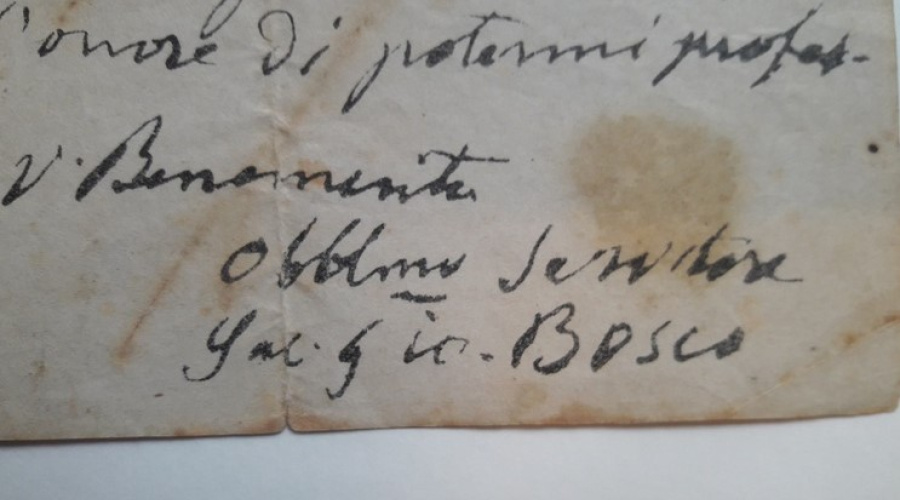 l'onore di potermi profes-
V. Benemerita
Obblmo Servitore
Sac. Gio. Bosco